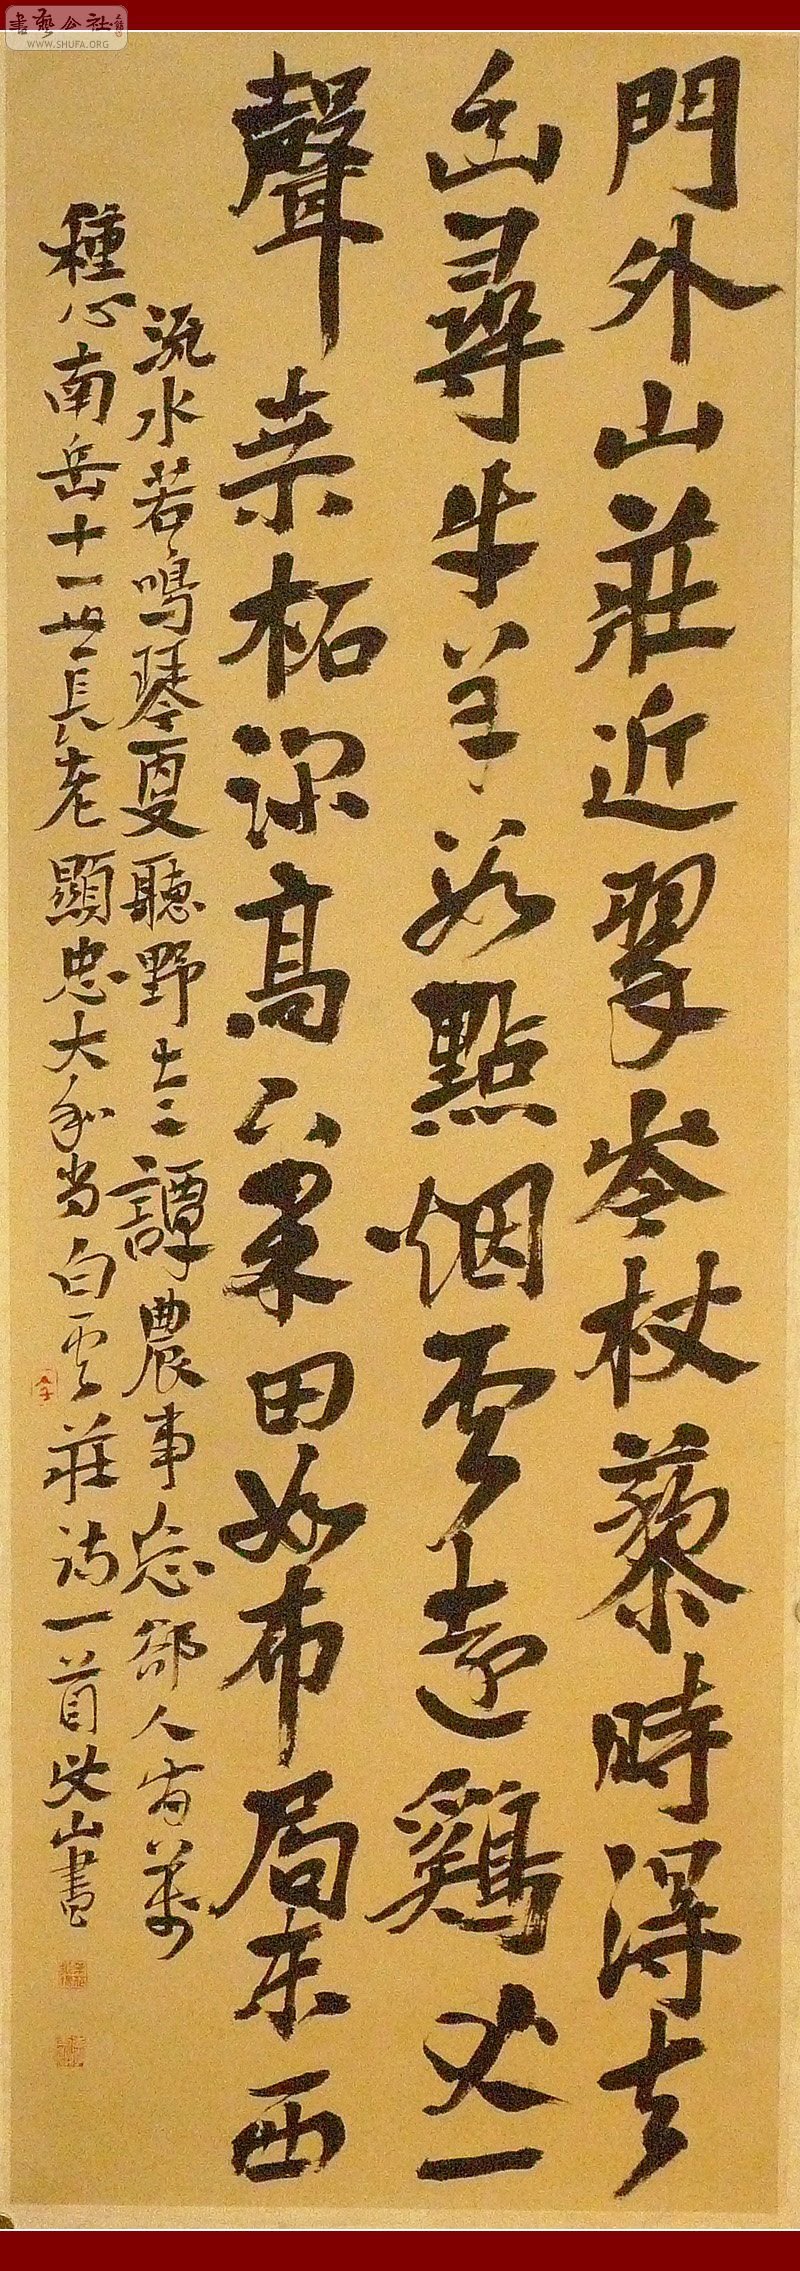 書藝公社
WWW.SHUFA.ORG
門外山莊近翠岑杖藜時得去
幽尋牛羊數點烟雲遠雞犬一
聲桑柘深高下果田如布局东西
流水若鳴琴更聽野老譚農事忘卻人間萬
種心南岳十一世長老顯忠大和尚白雲莊詩一首 山書